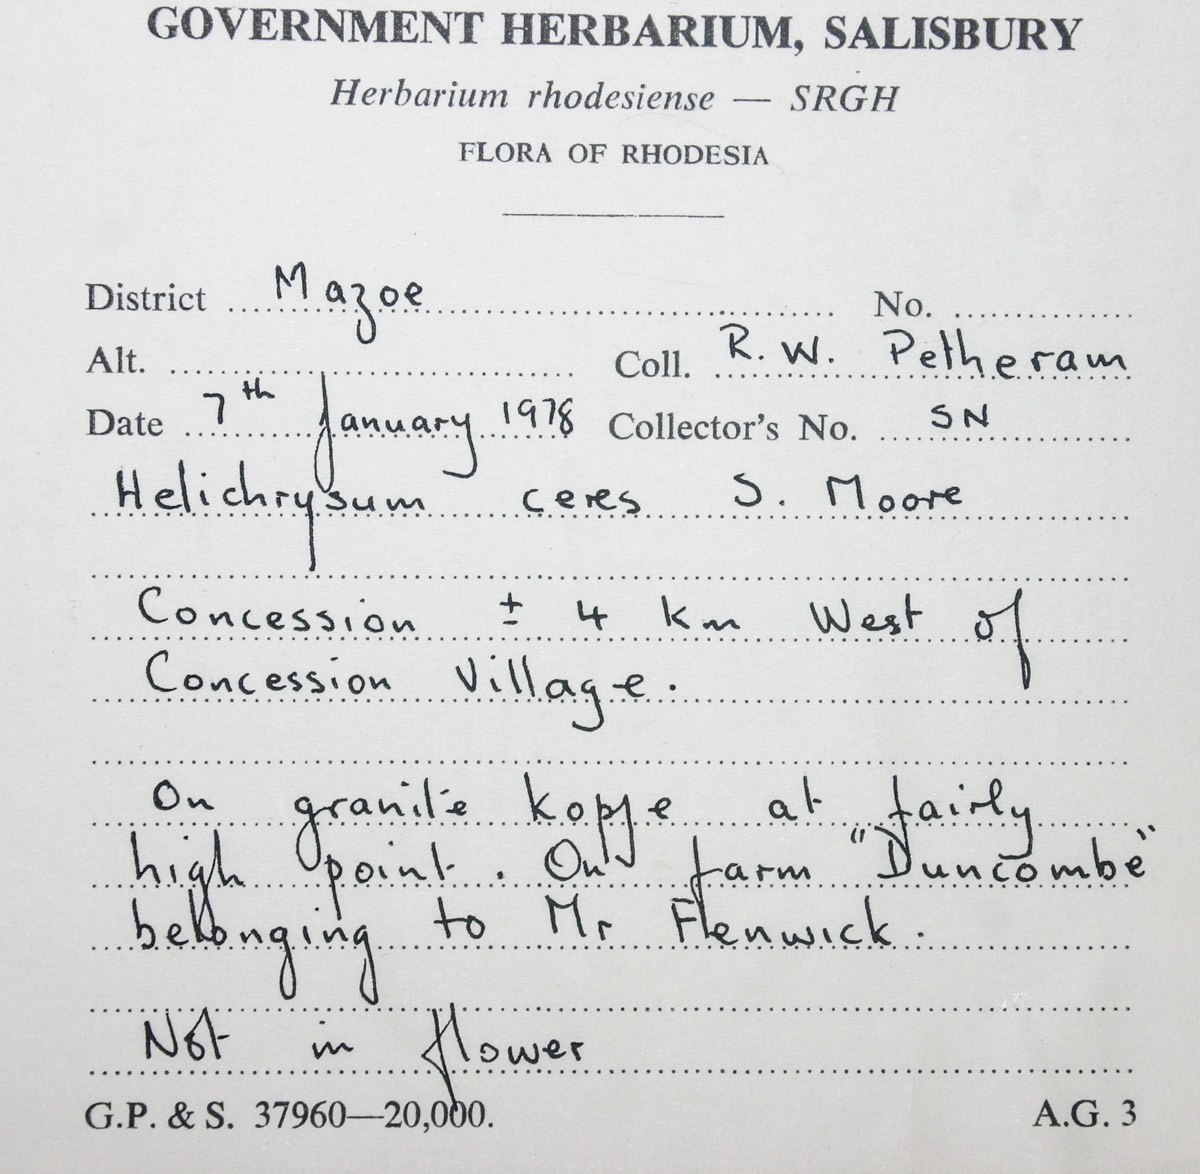 GOVERNMENT HERBARIUM, SALISBURY
Herbarium rhodesiense — SRGH
FLORA OF RHODESIA
District Mazoe No.
Alt. Coll. R. W. Petheram
Date 7th January 1978 Collector's No. SN
Helichrysum ceres S. Moore
Concession ± 4 km West of
Concession Village.
On granite kopje at fairly
high point. On farm "Duncombe"
belonging to Mr Flenwick.
Not in flower
G.P. & S. 37960—20,000. A.G. 3